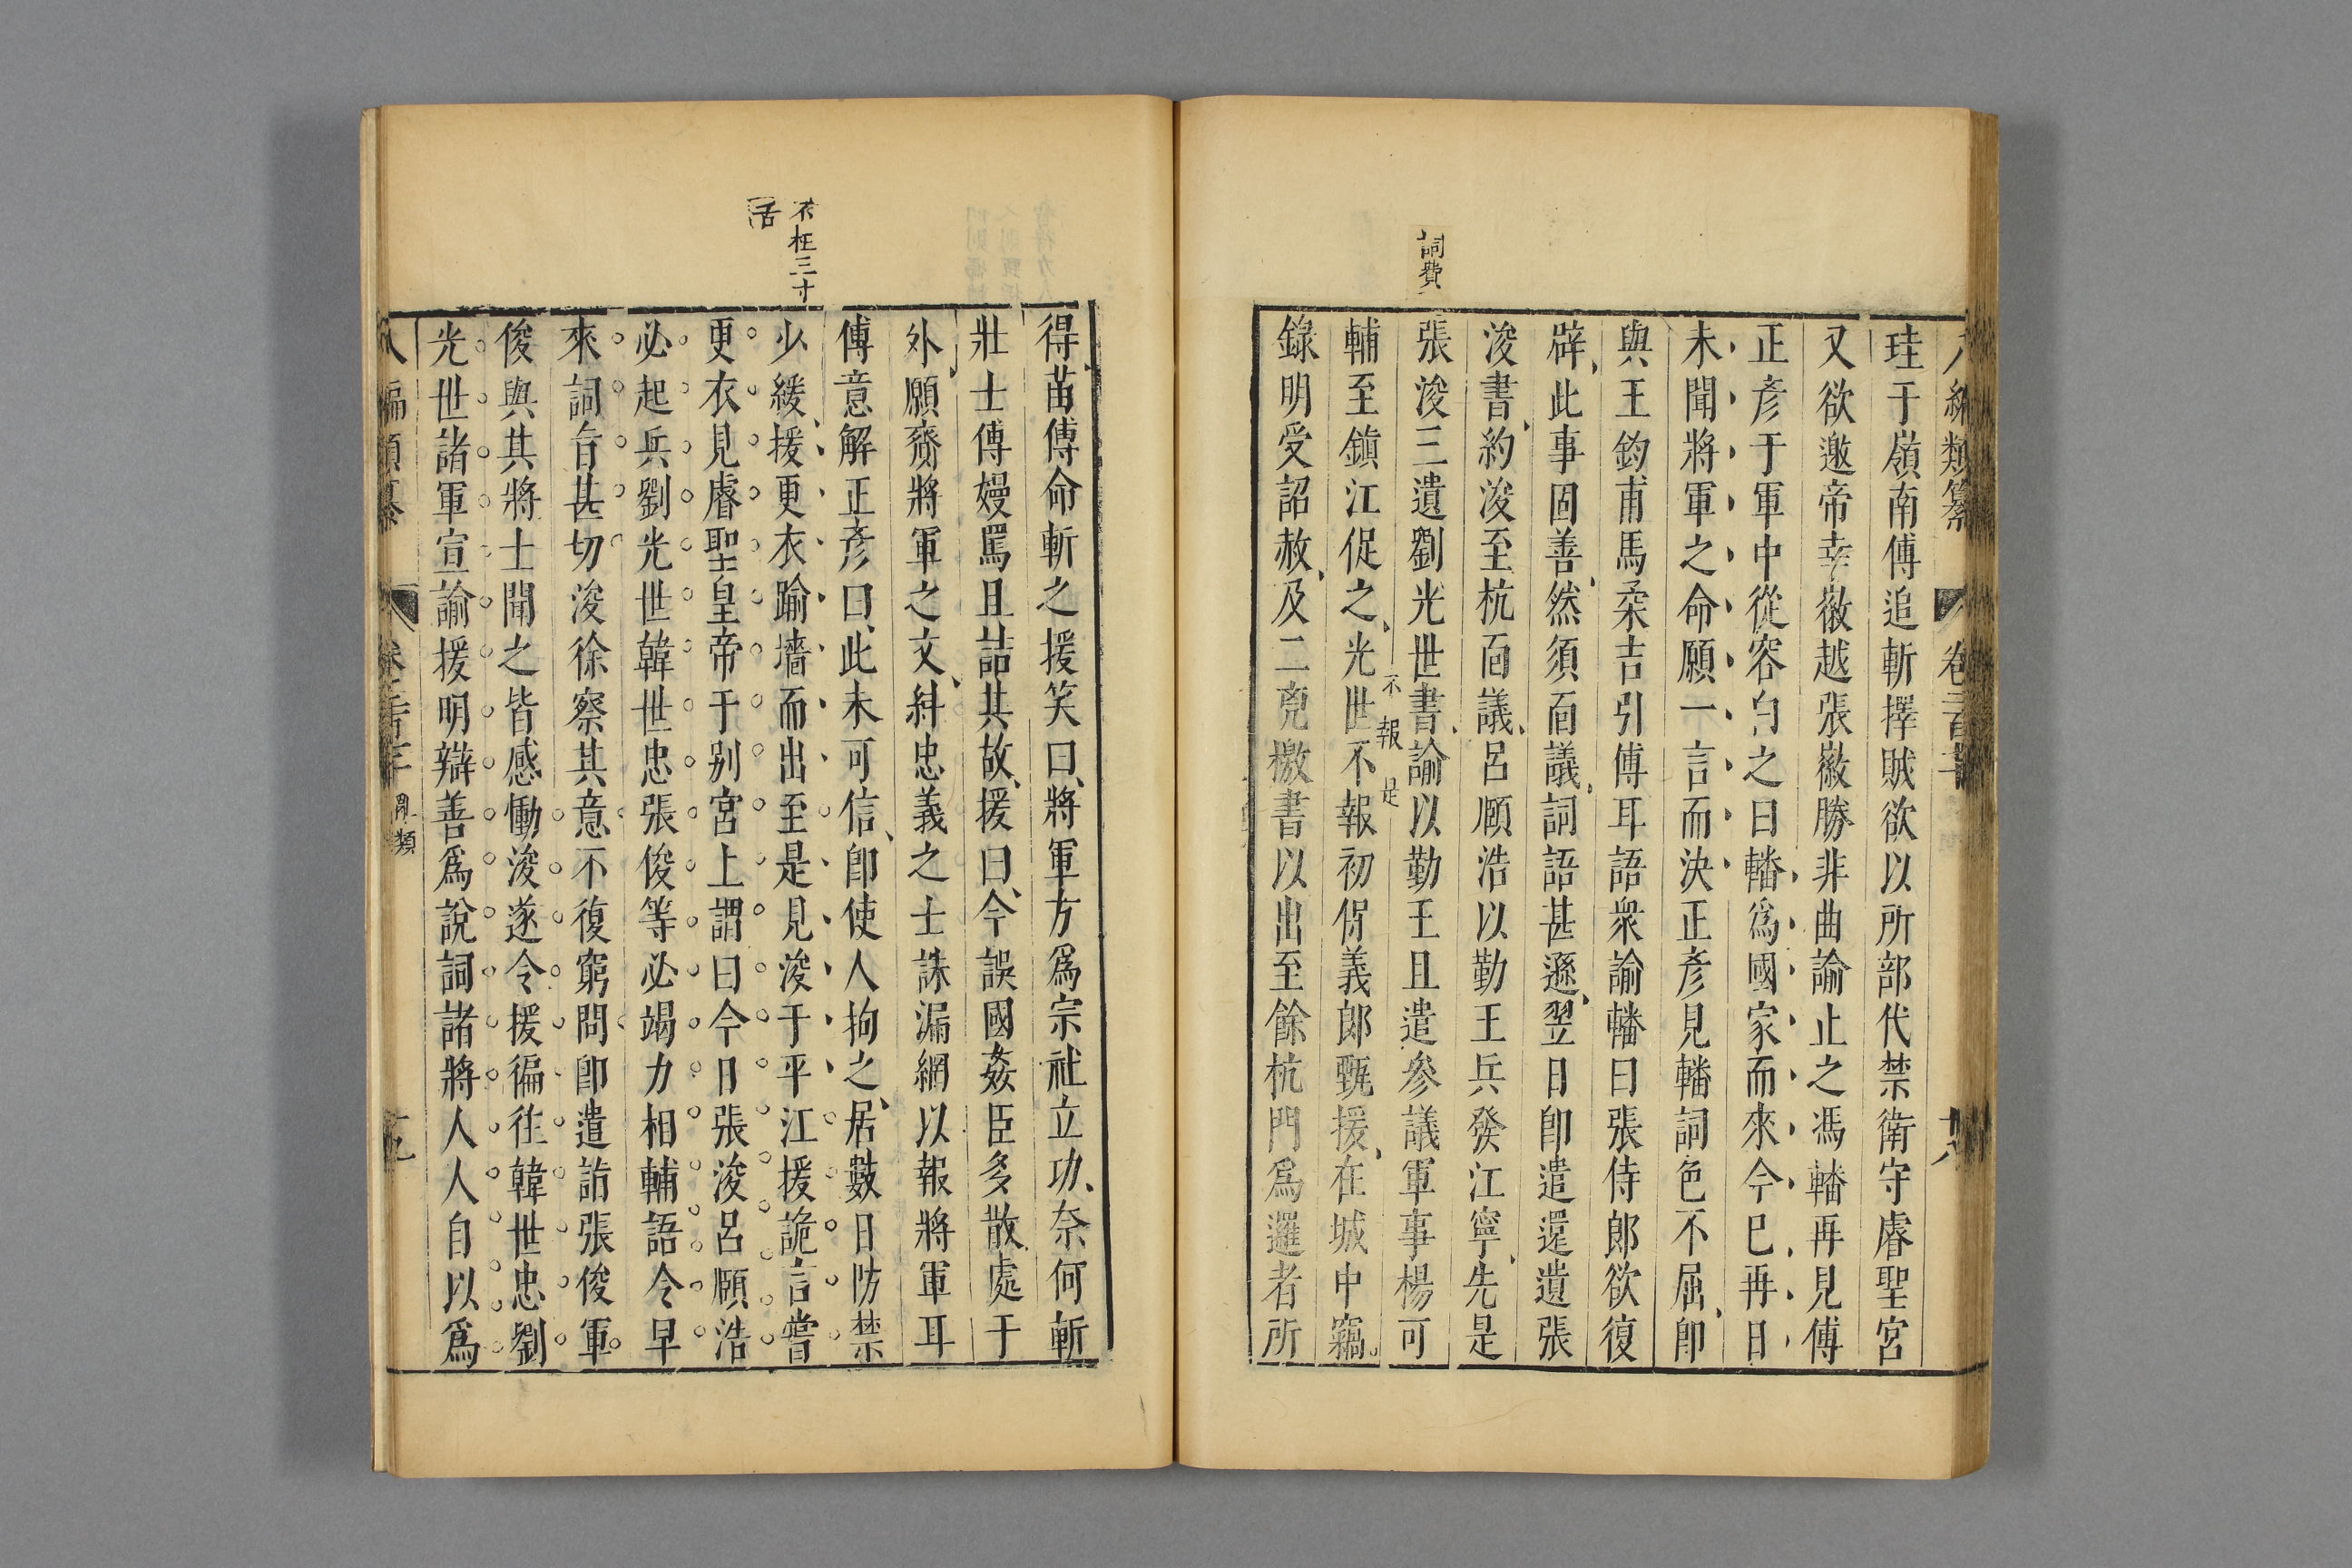 珪于嶺南傅追斬擇賊欲以所部代禁衛守睿聖宮
又欲邀帝幸徽越張徽勝非曲諭止之馮轓再見傅
正彥于軍中從容白之曰轓爲國家而來今巳再日
未聞將軍之命願一言而決正彥見轓詞色不屈卽
與王鈞甫馬柔吉引傅耳語衆諭轓曰張侍郎欲復
辟此事固善然須面議詞語甚遜翌日卽遣還遺張
浚書約浚至杭面議呂頤浩以勤王兵發江寧先是
詞費
張浚三遺劉光世書諭以勤王且遣參議軍事楊可
不報是
輔至鎮江促之光世不報初保義郎甄援在城中竊
錄明受詔赦及二兇檄書以出至餘杭門爲邏者所
得苗傅命斬之援笑曰將軍方爲宗社立功奈何斬
壯士傅嫚罵且詰其故援曰今誤國姦臣多散處于
外願齎將軍之文糾忠義之士誅漏網以報將軍耳
傅意解正彥曰此未可信卽使人拘之居數日防禁
不枉三寸
舌
少緩援更衣踰墻而出至是見浚于平江援詭言嘗
更衣見睿聖皇帝于別宮上謂曰今日張浚呂頤浩
必起兵劉光世韓世忠張俊等必竭力相輔語令早
來詞旨甚切浚徐察其意不復窮問卽遣詣張俊軍
俊與其將士聞之皆感慟浚遂令援徧往韓世忠劉
光世諸軍宣諭援明辯善爲說詞諸將人人自以爲